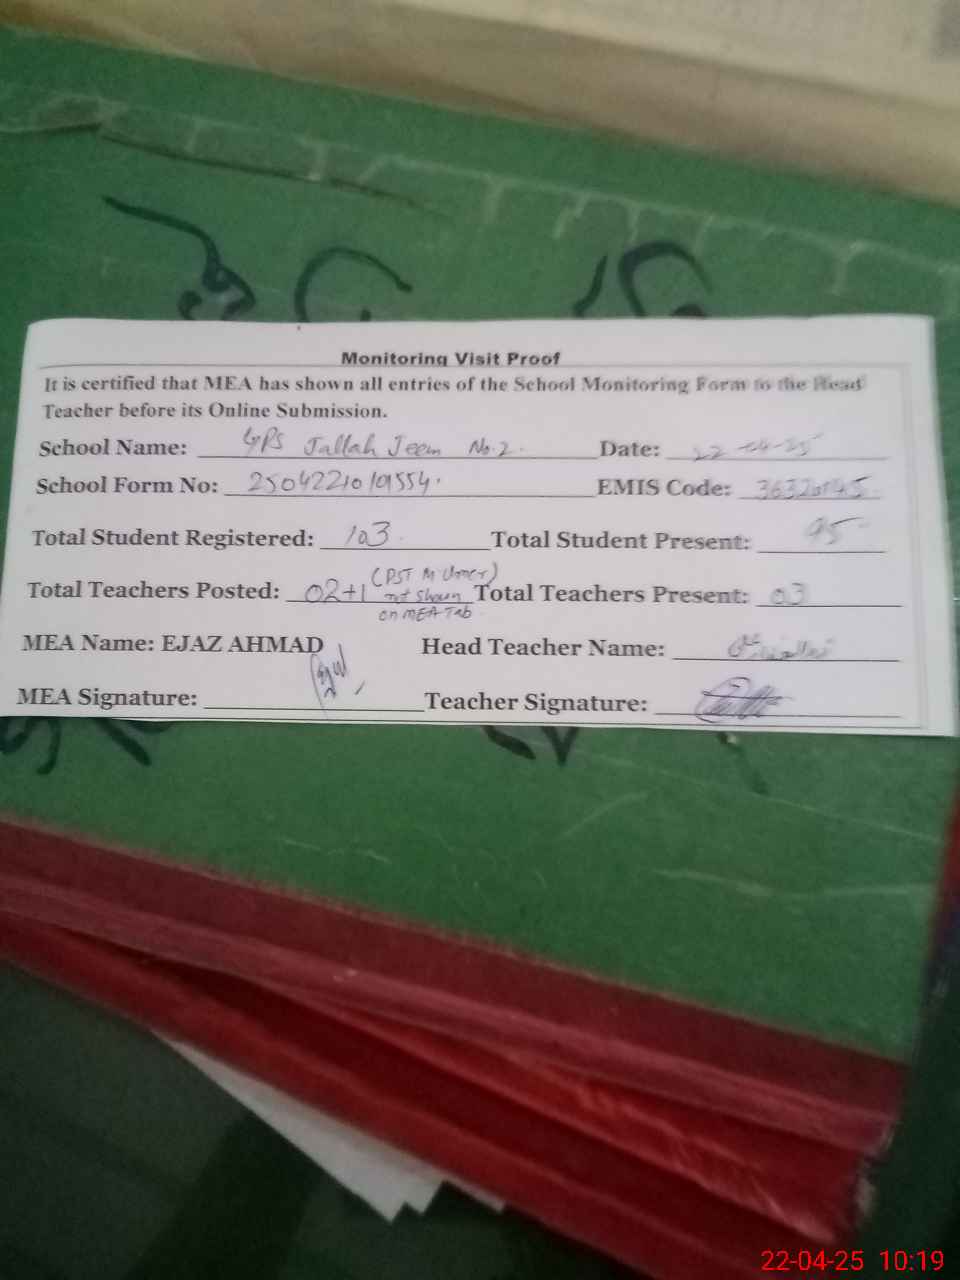 Monitoring Visit Proof
It is certified that MEA has shown all entries of the School Monitoring Form to the Head
Teacher before its Online Submission.
School Name: GPS Jallah Jeem No.2. Date: 22-04-25
School Form No: 2504221019554. EMIS Code:
Total Student Registered: 103. Total Student Present: 95
Total Teachers Posted: 02+1 (PST M Umer) not shown on MEA Tab Total Teachers Present: 03
MEA Name: EJAZ AHMAD Head Teacher Name:
MEA Signature: Teacher Signature:
22-04-25 10:19